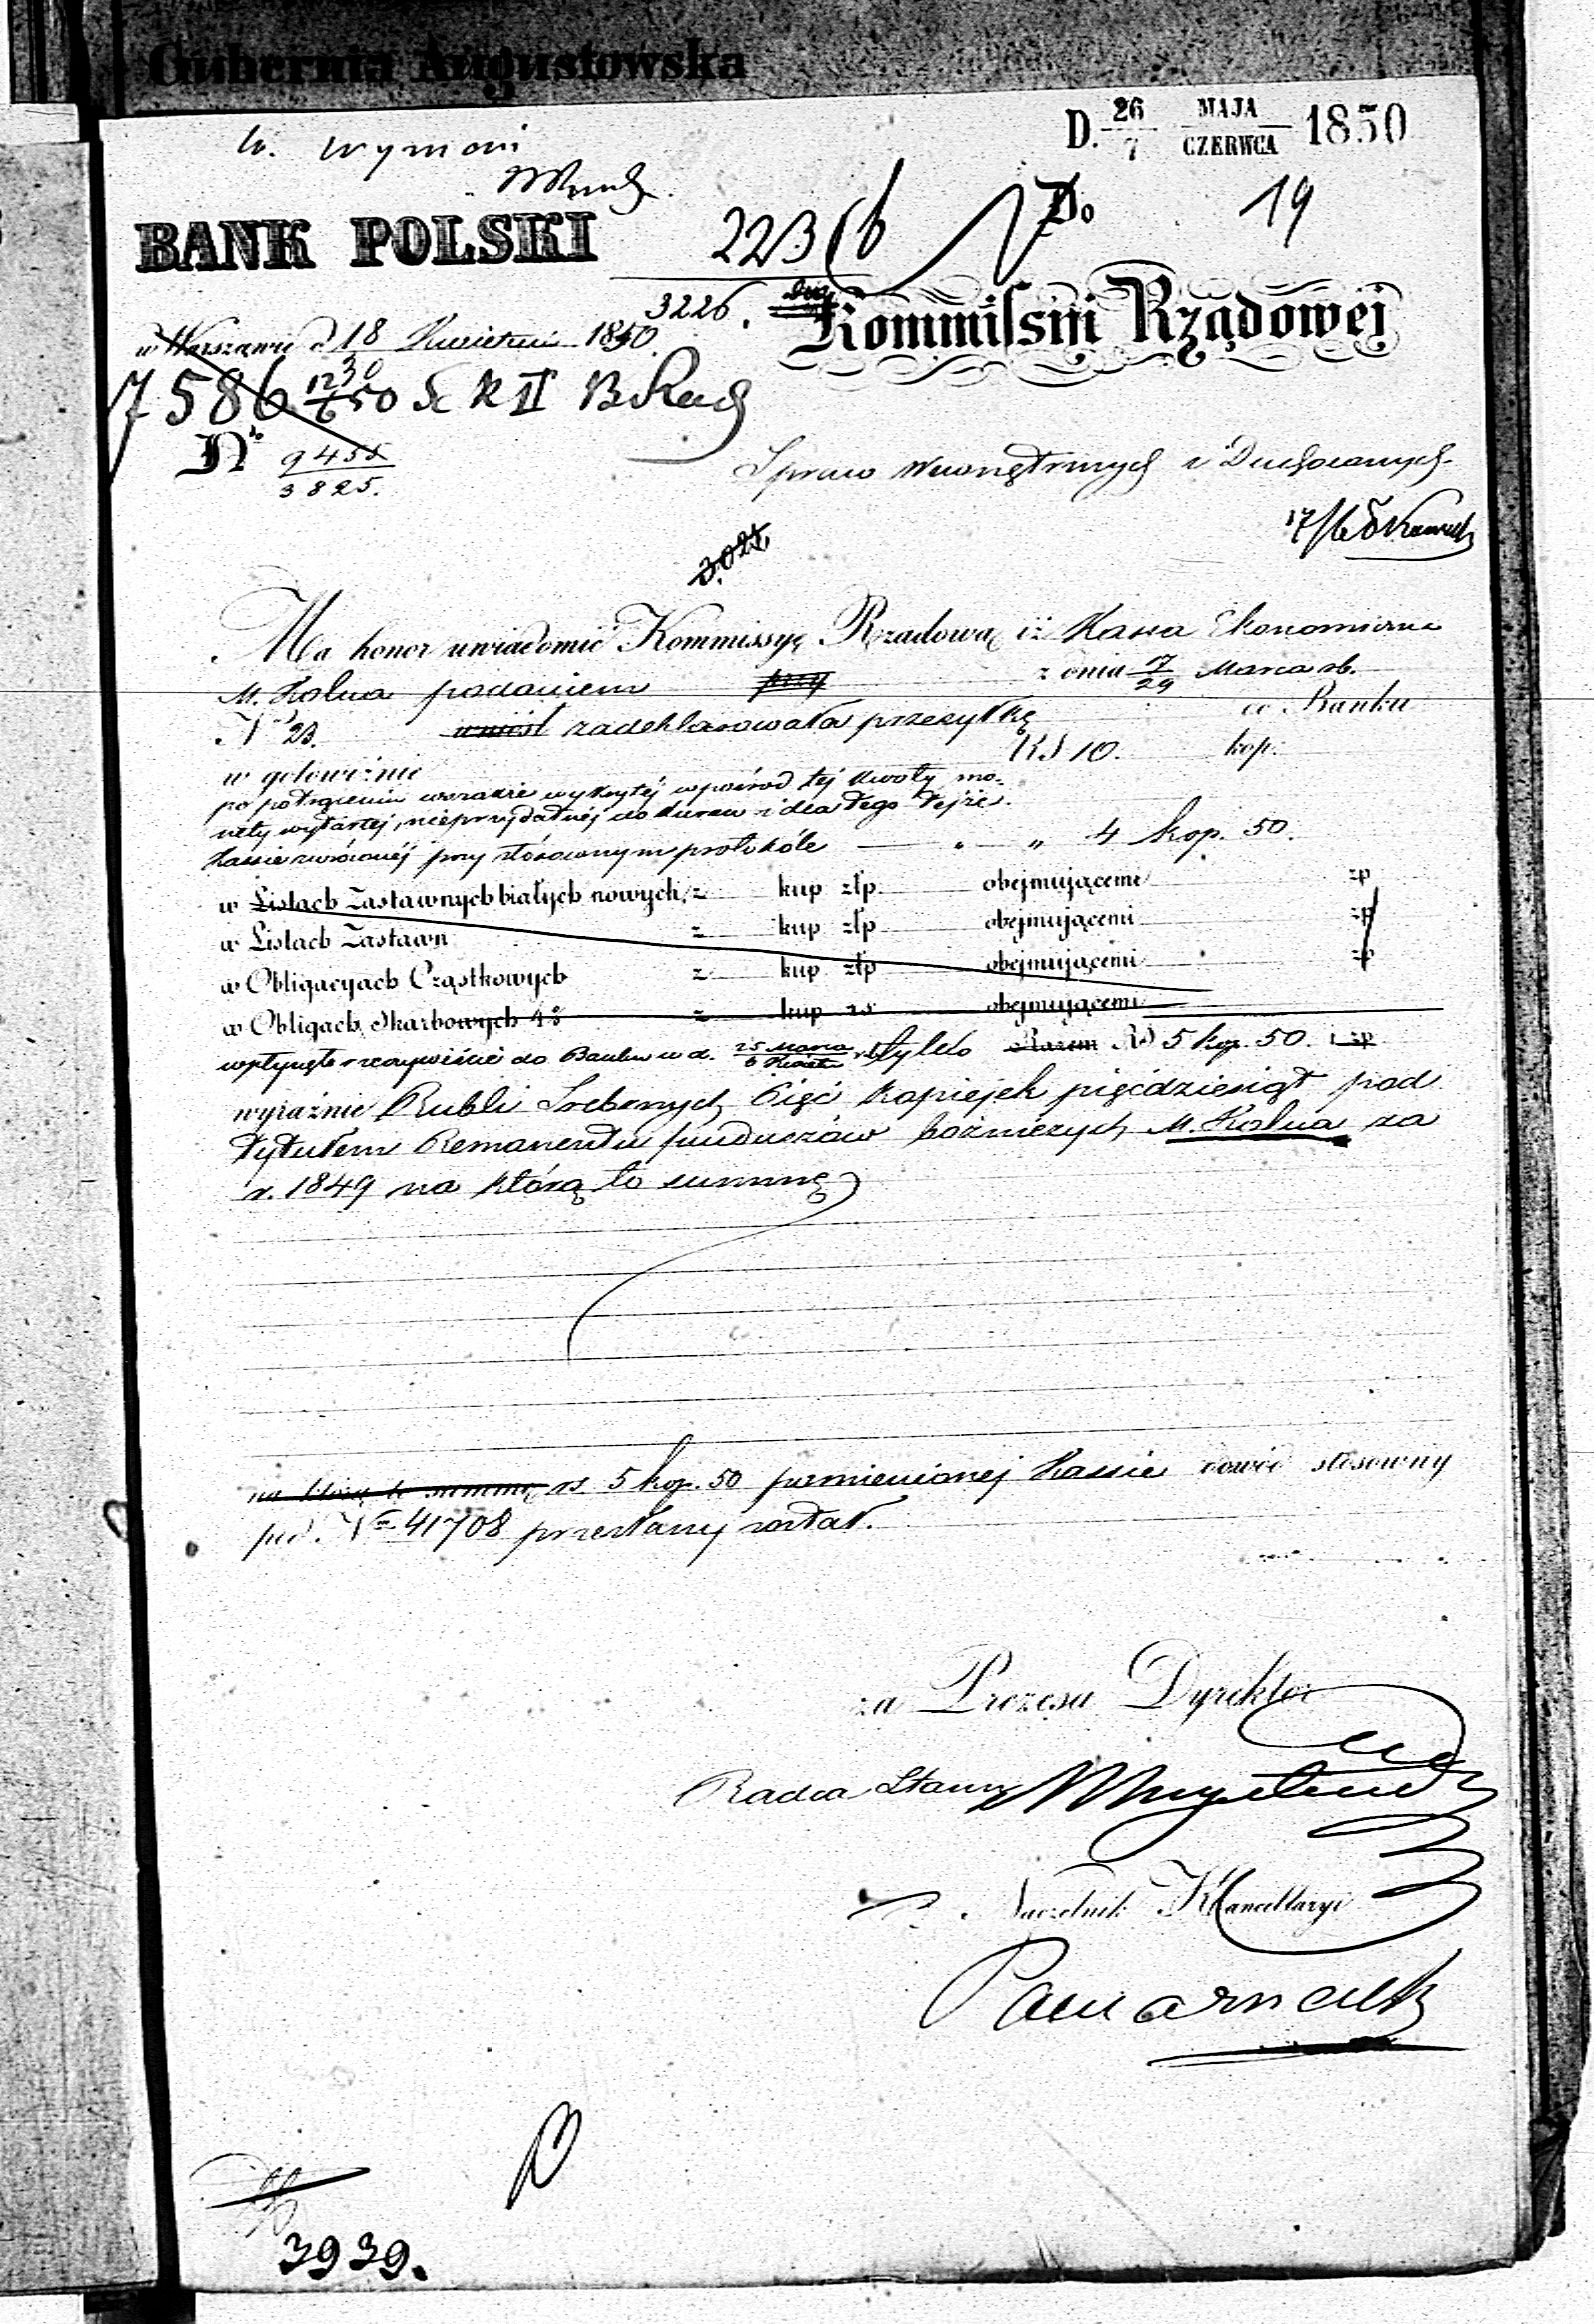 Gubernia Augustowska
D. 26/7 MAJA/CZERWCA 1850
19
BANK POLSKI
223
Do
3226.
Kommissyi Rządowej
w Warszawie d 18 Kwietnia 1850
7586 II
N° 9455
3825.
Spraw Wewnętrznych i Duchownych
17/6
Ma honor uwiadomić Kommissyę Rządową iż Kassa Ekonomiczna
M. Kolna podaniem przy z dnia 17/29 Marca rb.
N° 23. wniósł zadeklarowała przesyłkę do Banku
w gotowiźnie RS 10. kop.
po potrąceniu wszakże wykrytéj wpośród téj kwoty mo-
nety wytartéj, nieprzydatnéj do kursu i dla tego tejże
Kassie zwróconéj przy stósownym protokóle — „ — „ 4 kop. 50.
w Listach Zastawnych białych nowych z kup złp. obejmującemi zp
w Listach Zastawn z kup złp obejmującemi zp
w Obligacyach Cząstkowych z kup złp obejmującemi zp
w Obligach Skarbowych 4% z kup rs obejmującemi
wpłynęło rzeczywiście do Banku w d. 25 Marca/6 Kwiet. tylko Razem RS 5 kop. 50. i zp
wyraźnie Rubli Srebrnych Pięć kopiejek pięćdziesiąt pod
tytułem Remanentu funduszów bóżniczych M. Kolna za
r. 1849 na którą to summę
na którą to summę rs 5 kop. 50 pomienionej Kassie dowód stosowny
pod N° 41708 przesłany został.
za Prezesa Dyrektor
Radca Stanu
Naczelnik Kancellaryi
3939.